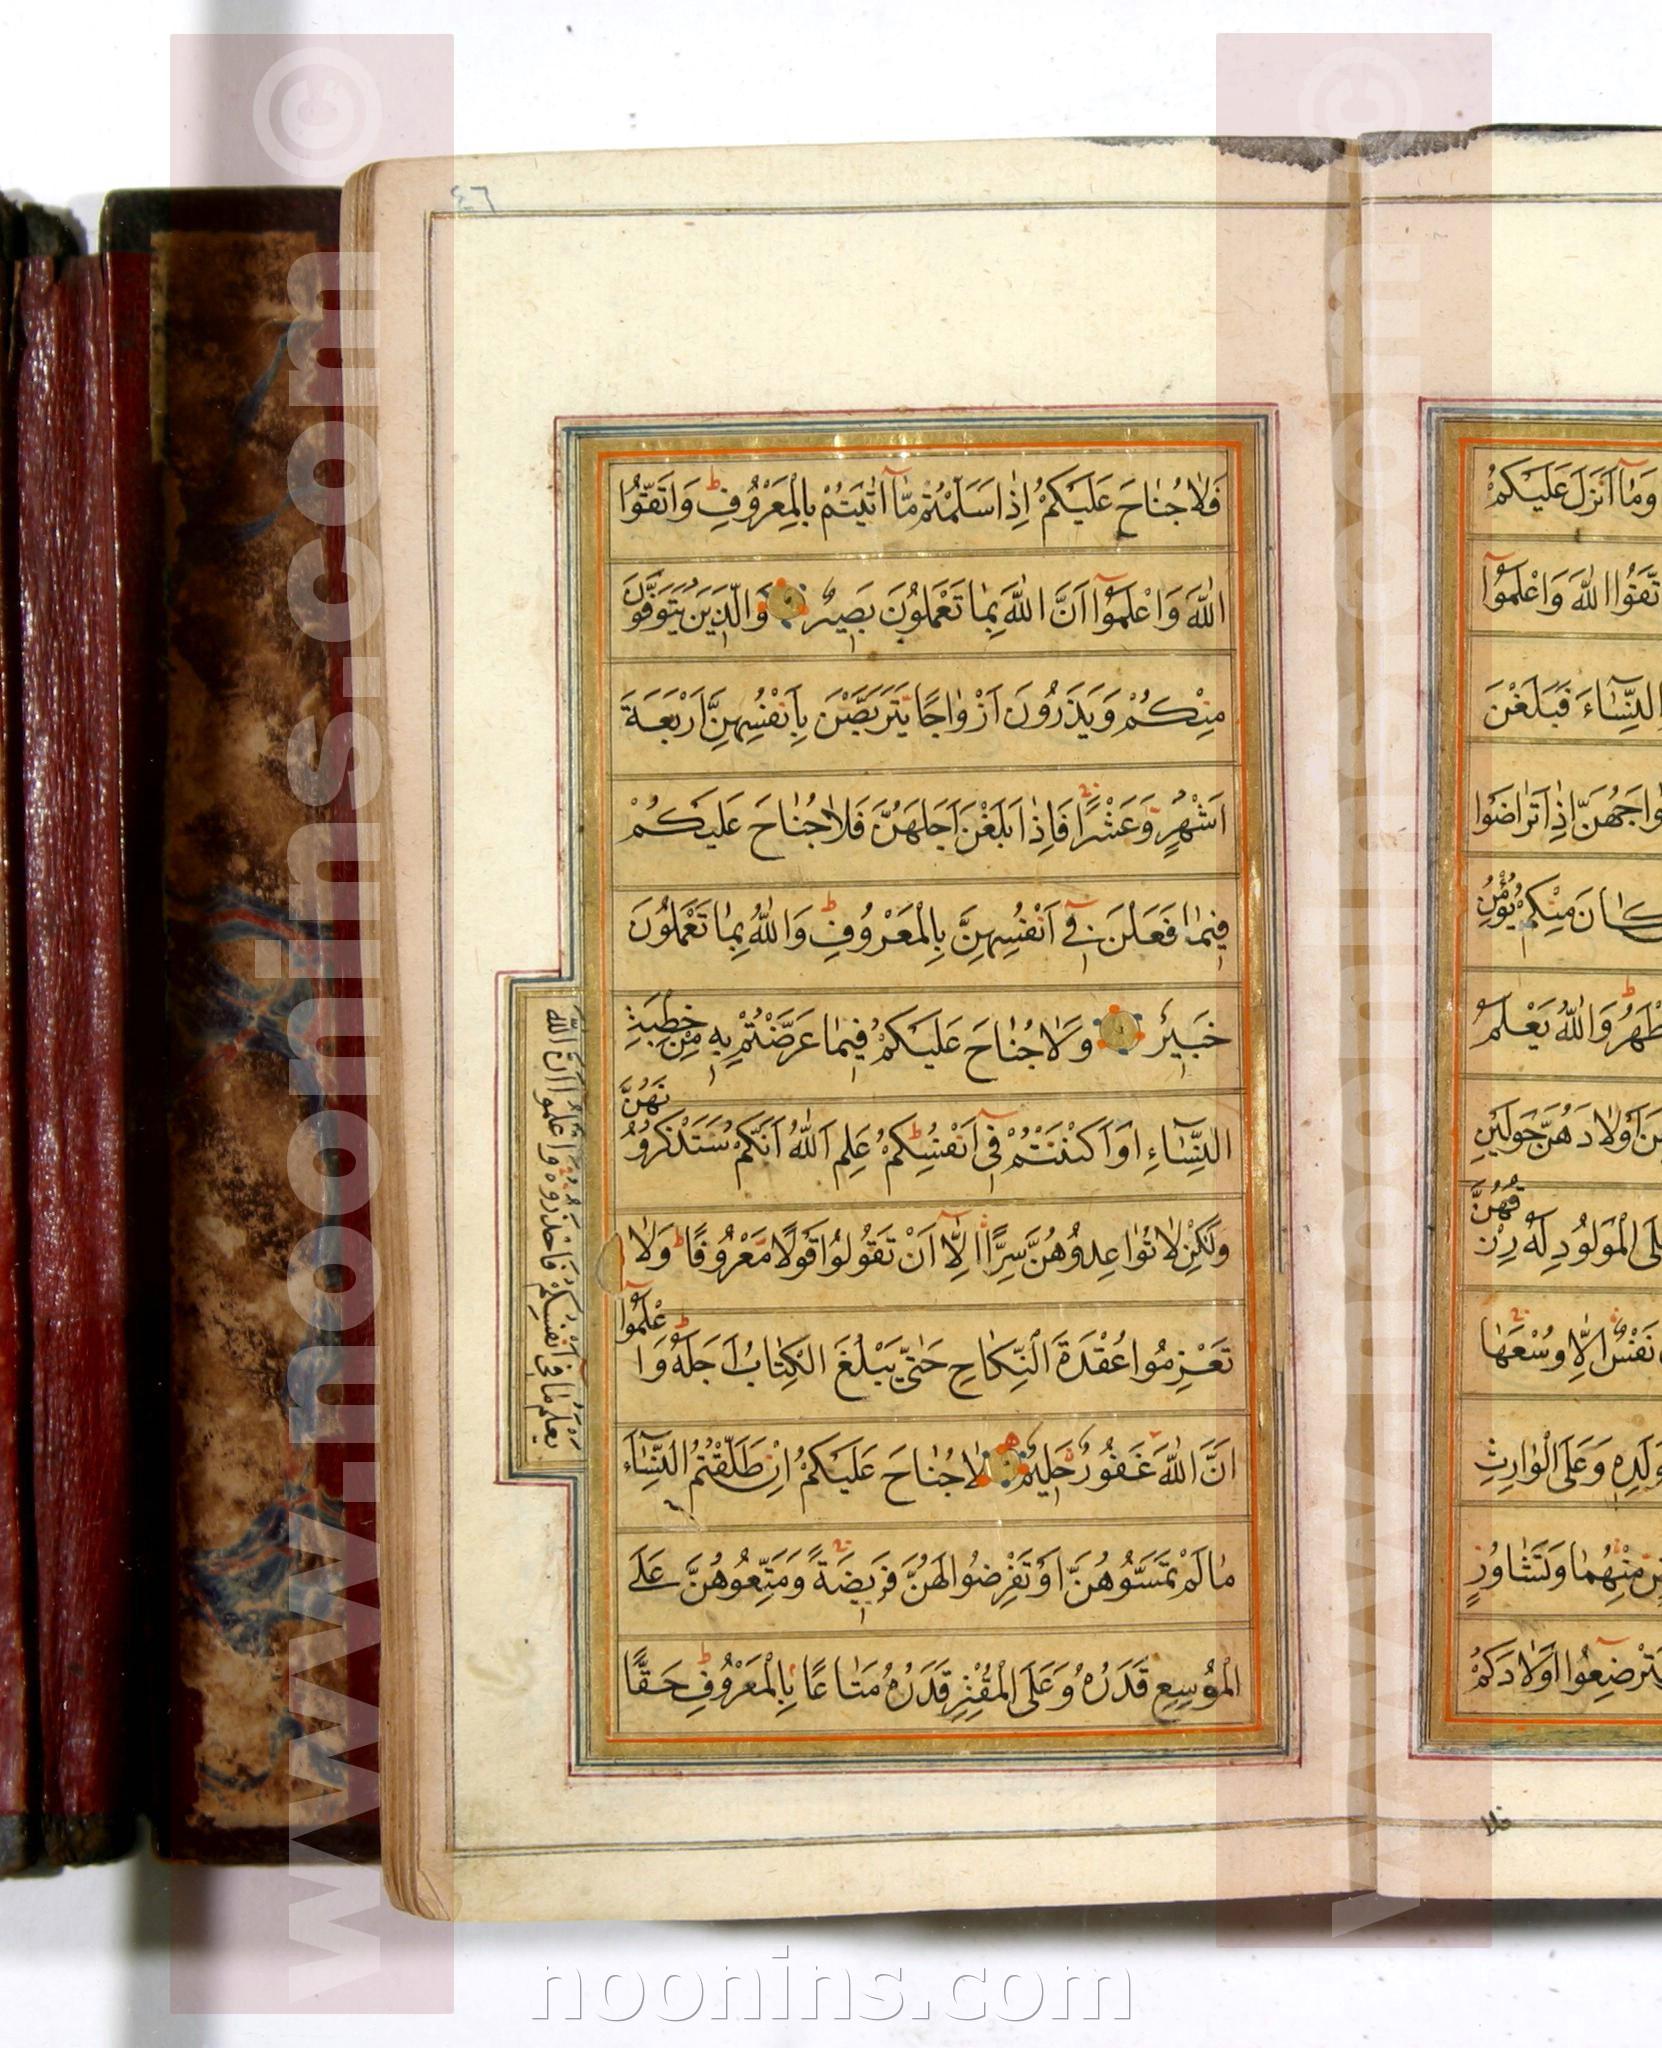 ٤٦
فَلَا جُنَاحَ عَلَيْكُمْ اِذَا سَلَّمْتُمْ مَّا اٰتَيْتُمْ بِالْمَعْرُوفِ ط وَاتَّقُوا
اللّٰهَ وَاعْلَمُوا اَنَّ اللّٰهَ بِمَا تَعْمَلُونَ بَصِيرٌ وَالَّذِينَ يُتَوَفَّوْنَ
مِنْكُمْ وَيَذَرُونَ اَزْوَاجًا يَتَرَبَّصْنَ بِاَنْفُسِهِنَّ اَرْبَعَةَ
اَشْهُرٍ وَعَشْرًا فَاِذَا بَلَغْنَ اَجَلَهُنَّ فَلَا جُنَاحَ عَلَيْكُمْ
فِيمَا فَعَلْنَ فِي اَنْفُسِهِنَّ بِالْمَعْرُوفِ ط وَاللّٰهُ بِمَا تَعْمَلُونَ
خَبِيرٌ وَلَا جُنَاحَ عَلَيْكُمْ فِيمَا عَرَّضْتُمْ بِهِ مِنْ خِطْبَةِ
النِّسَاءِ اَوْ اَكْنَنْتُمْ فِي اَنْفُسِكُمْ ط عَلِمَ اللّٰهُ اَنَّكُمْ سَتَذْكُرُونَهُنَّ
وَلٰكِنْ لَا تُوَاعِدُوهُنَّ سِرًّا اِلَّا اَنْ تَقُولُوا قَوْلًا مَعْرُوفًا ط وَلَا
تَعْزِمُوا عُقْدَةَ النِّكَاحِ حَتّٰى يَبْلُغَ الْكِتَابُ اَجَلَهُ ط وَاعْلَمُوا
اَنَّ اللّٰهَ يَعْلَمُ مَا فِي اَنْفُسِكُمْ فَاحْذَرُوهُ وَاعْلَمُوا اَنَّ اللّٰهَ
اَنَّ اللّٰهَ غَفُورٌ حَلِيمٌ لَا جُنَاحَ عَلَيْكُمْ اِنْ طَلَّقْتُمُ النِّسَاءَ
مَا لَمْ تَمَسُّوهُنَّ اَوْ تَفْرِضُوا لَهُنَّ فَرِيضَةً وَمَتِّعُوهُنَّ عَلَى
الْمُوسِعِ قَدَرُهُ وَعَلَى الْمُقْتِرِ قَدَرُهُ مَتَاعًا بِالْمَعْرُوفِ ط حَقًّا
وَمَا اَنْزَلَ عَلَيْكُمْ
تَّقُوا اللّٰهَ وَاعْلَمُوا
النِّسَاءَ فَبَلَغْنَ
وَاجَهُنَّ اِذَا تَرَاضَوْا
كَانَ مِنْكُمْ يُؤْمِنُ
طْهَرُ ط وَاللّٰهُ يَعْلَمُ
نَ اَوْلَادَهُنَّ حَوْلَيْنِ
لَى الْمَوْلُودِ لَهُ رِزْقُهُنَّ
نَفْسٌ اِلَّا وُسْعَهَا
وَلَدِهِ وَعَلَى الْوَارِثِ
ضٍ مِنْهُمَا وَتَشَاوُرٍ
سْتَرْضِعُوا اَوْلَادَكُمْ
فلا
www.noonins.com ©
www.noonins.com ©
noonins.com